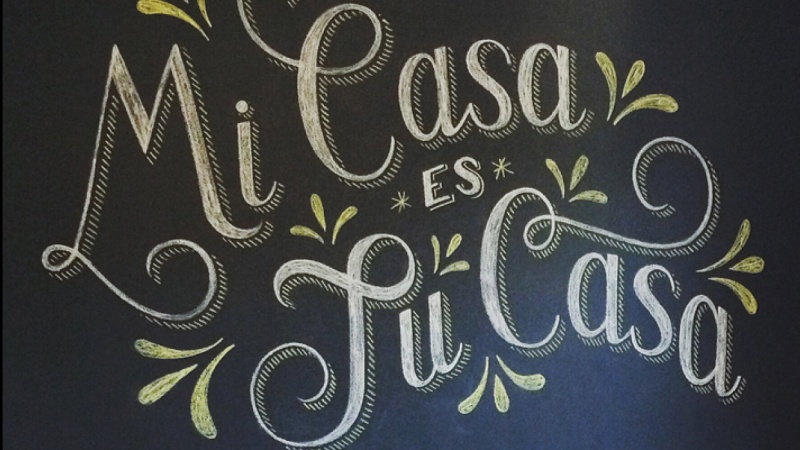 Mi Casa
ES
Tu Casa